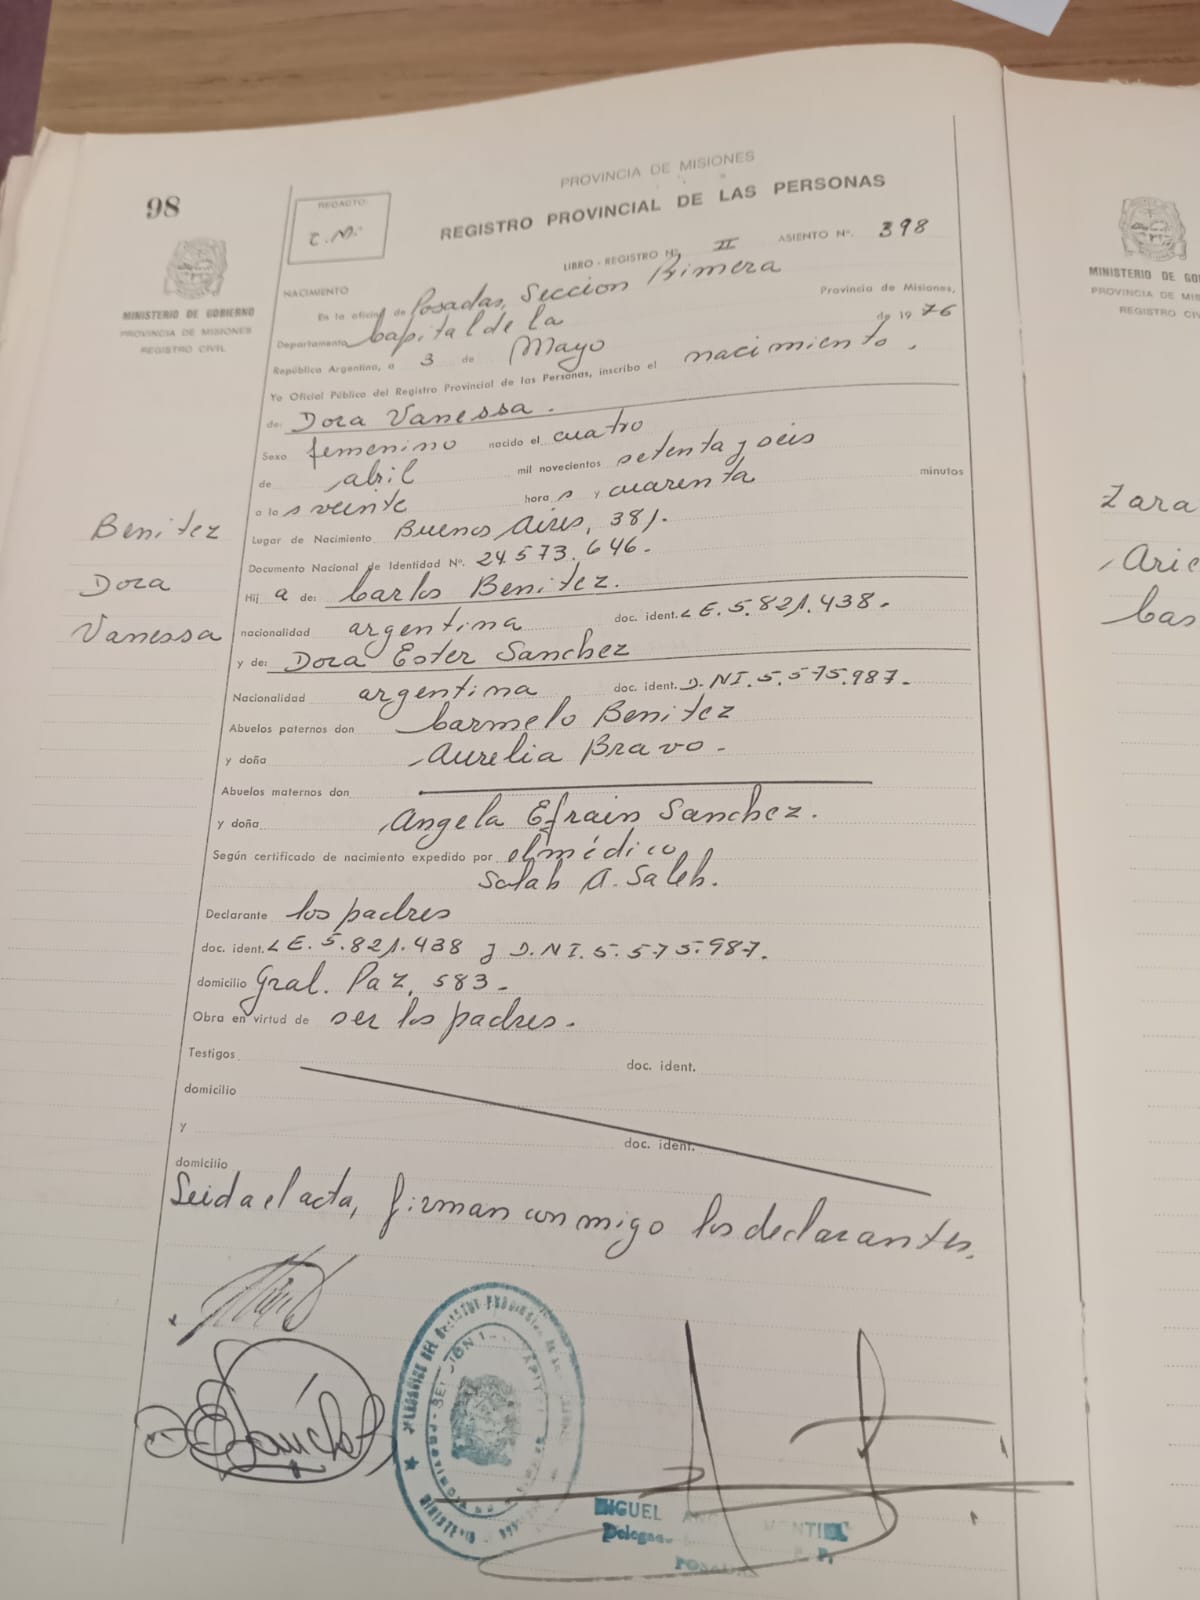 98
MINISTERIO DE GOBIERNO
PROVINCIA DE MISIONES
REGISTRO CIVIL
REDACTO:
PROVINCIA DE MISIONES
REGISTRO PROVINCIAL DE LAS PERSONAS
LIBRO - REGISTRO Nº. II ASIENTO Nº. 398
NACIMIENTO
En la oficina de Posadas, Seccion Primera
Departamento Capital de la Provincia de Misiones,
República Argentina, a 3 de Mayo de 1976
Yo Oficial Público del Registro Provincial de las Personas, inscribo el nacimiento.
de: Dora Vanessa.
Sexo femenino nacido el cuatro
de abril mil novecientos setenta y seis
a las veinte horas y cuarenta minutos
Lugar de Nacimiento Buenos Aires, 381.
Documento Nacional de Identidad Nº. 24.573.646.
Hij a de: Carlos Benitez.
nacionalidad argentina doc. ident. L E. 5.821.438.
y de: Dora Ester Sanchez
Nacionalidad argentina doc. ident. D.NI. 5.575.987.
Abuelos paternos don Carmelo Benitez
y doña Aurelia Bravo.
Abuelos maternos don
y doña Angela Efrain Sanchez.
Según certificado de nacimiento expedido por el médico
A. Saleh.
Declarante los padres
doc. ident. L E. 5.821.438 y D.NI. 5.575.987.
domicilio Gral. Paz, 583.
Obra en virtud de ser los padres.
Testigos doc. ident.
domicilio
y doc. ident.
domicilio
Leida el acta, firman conmigo los declarantes.
Benitez
Dora
Vanessa
Sánchez
MIGUEL MONTIEL
MINISTERIO DE GOBIERNO
PROVINCIA DE MIS
REGISTRO CIV
Zara